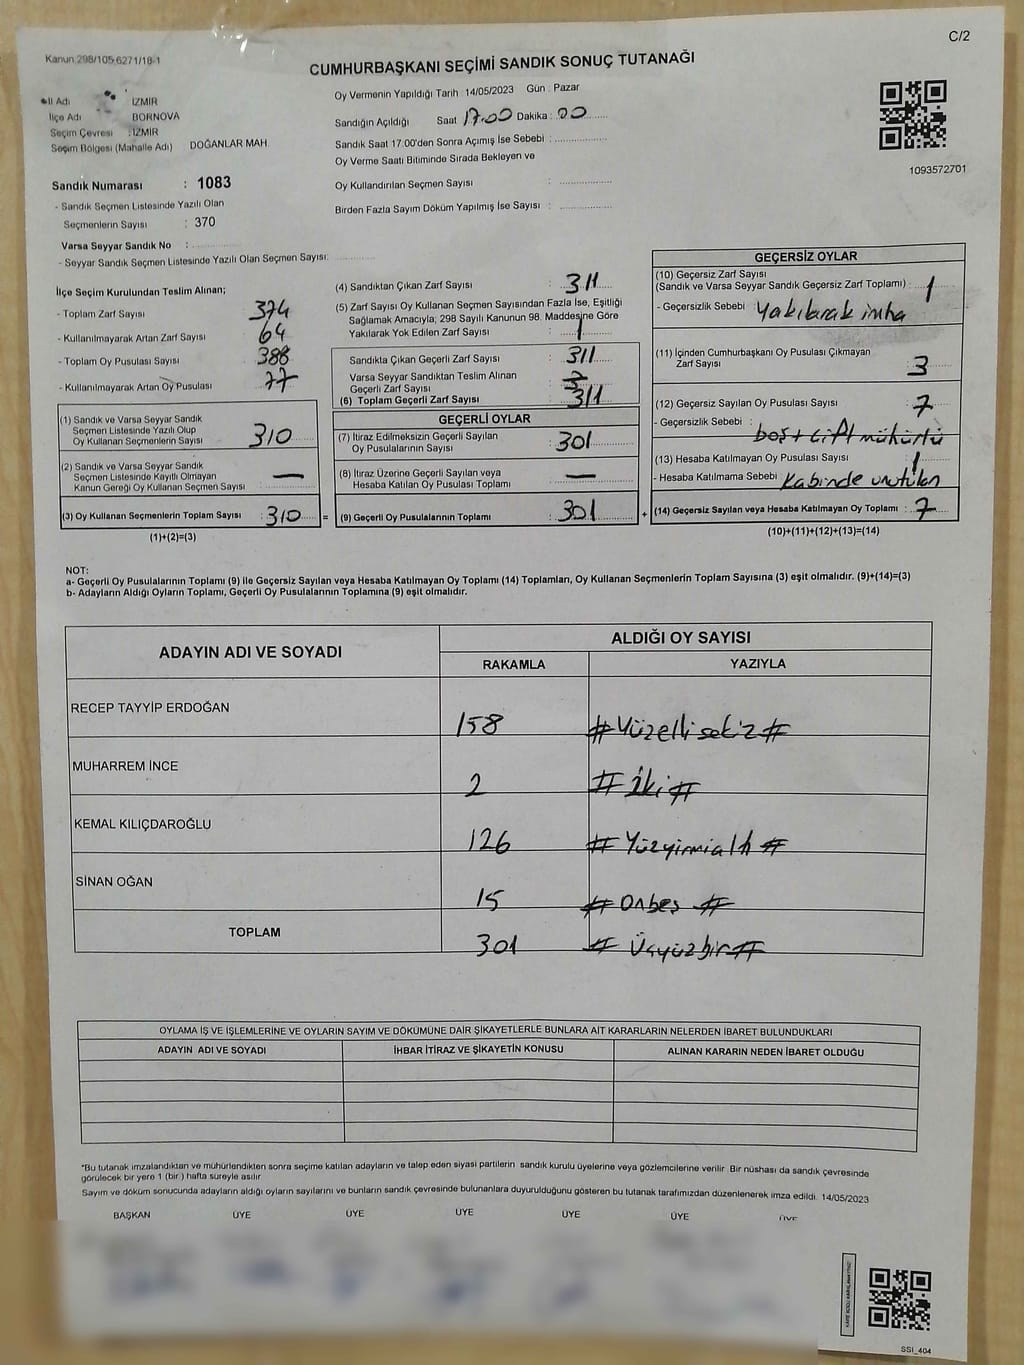 C/2
Kanun 298/105,6271/18-1
CUMHURBAŞKANI SEÇİMİ SANDIK SONUÇ TUTANAĞI
İl Adı : İZMİR
İlçe Adı : BORNOVA
Seçim Çevresi : İZMİR
Seçim Bölgesi (Mahalle Adı) DOĞANLAR MAH.
Oy Vermenin Yapıldığı Tarih : 14/05/2023 Gün : Pazar
Sandığın Açıldığı Saat : 17.00 Dakika : 00
Sandık Saat 17.00'den Sonra Açımış İse Sebebi :
Oy Verme Saati Bitiminde Sırada Bekleyen ve
Oy Kullandırılan Seçmen Sayısı :
Birden Fazla Sayım Döküm Yapılmış İse Sayısı :
1093572701
Sandık Numarası : 1083
- Sandık Seçmen Listesinde Yazılı Olan
Seçmenlerin Sayısı : 370
Varsa Seyyar Sandık No :
- Seyyar Sandık Seçmen Listesinde Yazılı Olan Seçmen Sayısı:
İlçe Seçim Kurulundan Teslim Alınan;
- Toplam Zarf Sayısı : 374
- Kullanılmayarak Artan Zarf Sayısı : 64
- Toplam Oy Pusulası Sayısı : 388
- Kullanılmayarak Artan Oy Pusulası : 77
(1) Sandık ve Varsa Seyyar Sandık
Seçmen Listesinde Yazılı Olup
Oy Kullanan Seçmenlerin Sayısı : 310
(2) Sandık ve Varsa Seyyar Sandık
Seçmen Listesinde Kayıtlı Olmayan
Kanun Gereği Oy Kullanan Seçmen Sayısı : —
(3) Oy Kullanan Seçmenlerin Toplam Sayısı : 310 =
(1)+(2)=(3)
(4) Sandıktan Çıkan Zarf Sayısı : 311
(5) Zarf Sayısı Oy Kullanan Seçmen Sayısından Fazla İse, Eşitliği
Sağlamak Amacıyla; 298 Sayılı Kanunun 98. Maddesine Göre
Yakılarak Yok Edilen Zarf Sayısı : 1
Sandıkta Çıkan Geçerli Zarf Sayısı : 311
Varsa Seyyar Sandıktan Teslim Alınan
Geçerli Zarf Sayısı :
(6) Toplam Geçerli Zarf Sayısı : 311
GEÇERLİ OYLAR
(7) İtiraz Edilmeksizin Geçerli Sayılan
Oy Pusulalarının Sayısı : 301
(8) İtiraz Üzerine Geçerli Sayılan veya
Hesaba Katılan Oy Pusulası Toplamı : —
(9) Geçerli Oy Pusulalarının Toplamı : 301 +
GEÇERSİZ OYLAR
(10) Geçersiz Zarf Sayısı
(Sandık ve Varsa Seyyar Sandık Geçersiz Zarf Toplamı) : 1
- Geçersizlik Sebebi : Yakılarak imha
(11) İçinden Cumhurbaşkanı Oy Pusulası Çıkmayan
Zarf Sayısı : 3
(12) Geçersiz Sayılan Oy Pusulası Sayısı : 7
- Geçersizlik Sebebi : boş+ çift mühürlü
(13) Hesaba Katılmayan Oy Pusulası Sayısı : 1
- Hesaba Katılmama Sebebi : Kabinde unutulan
(14) Geçersiz Sayılan veya Hesaba Katılmayan Oy Toplamı : 7
(10)+(11)+(12)+(13)=(14)
NOT:
a- Geçerli Oy Pusulalarının Toplamı (9) ile Geçersiz Sayılan veya Hesaba Katılmayan Oy Toplamı (14) Toplamları, Oy Kullanan Seçmenlerin Toplam Sayısına (3) eşit olmalıdır. (9)+(14)=(3)
b- Adayların Aldığı Oyların Toplamı, Geçerli Oy Pusulalarının Toplamına (9) eşit olmalıdır.
ADAYIN ADI VE SOYADI
ALDIĞI OY SAYISI
RAKAMLA YAZIYLA
RECEP TAYYİP ERDOĞAN 158 # Yüzellisekiz #
MUHARREM İNCE 2 # iki #
KEMAL KILIÇDAROĞLU 126 # Yüzyirmialtı #
SİNAN OĞAN 15 # Onbeş #
TOPLAM 301 # Üçyüzbir #
OYLAMA İŞ VE İŞLEMLERİNE VE OYLARIN SAYIM VE DÖKÜMÜNE DAİR ŞİKAYETLERLE BUNLARA AİT KARARLARIN NELERDEN İBARET BULUNDUKLARI
ADAYIN ADI VE SOYADI İHBAR İTİRAZ VE ŞİKAYETİN KONUSU ALINAN KARARIN NEDEN İBARET OLDUĞU
*Bu tutanak imzalandıktan ve mühürlendikten sonra seçime katılan adayların ve talep eden siyasi partilerin sandık kurulu üyelerine veya gözlemcilerine verilir. Bir nüshası da sandık çevresinde
görülecek bir yere 1 (bir) hafta süreyle asılır.
Sayım ve döküm sonucunda adayların aldığı oyların sayılarını ve bunların sandık çevresinde bulunanlara duyurulduğunu gösteren bu tutanak tarafımızdan düzenlenerek imza edildi. 14/05/2023
BAŞKAN ÜYE ÜYE ÜYE ÜYE ÜYE ÜYE
SSI_404